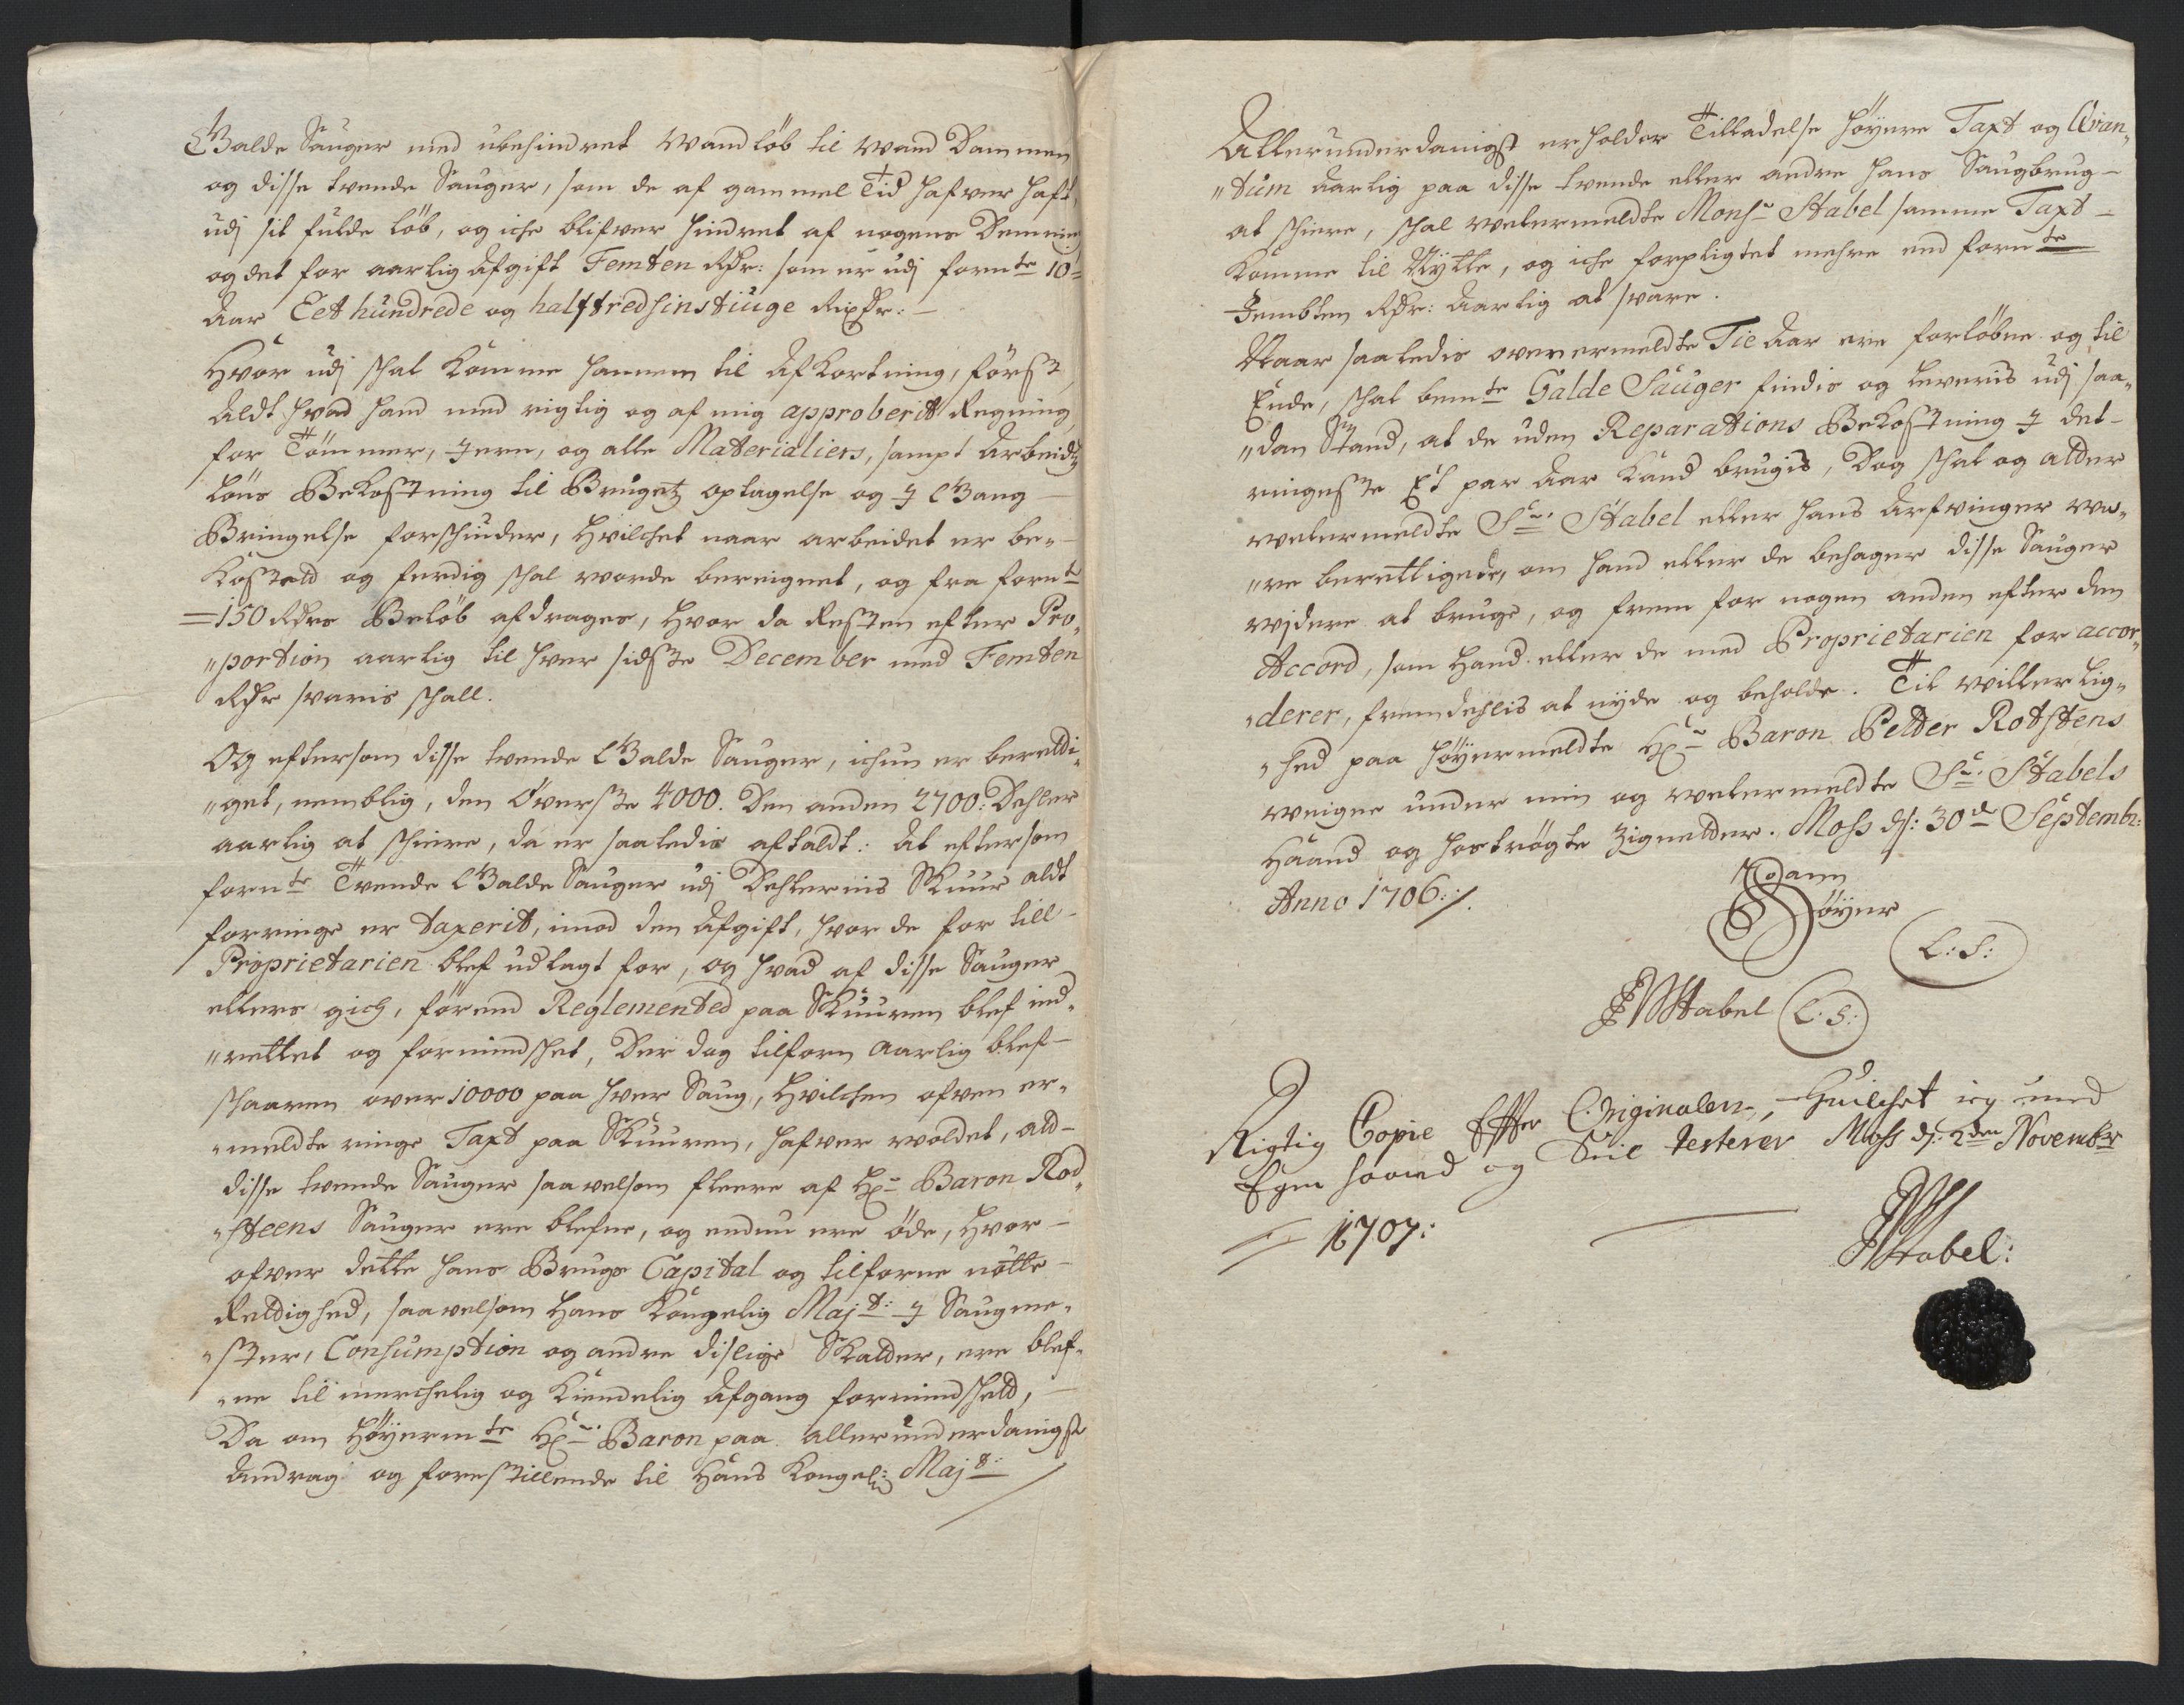 Galde Sauger med ubehindret wandløb til wand Dammen
og disse tvende Sauger, som de af gammel Tid hafver haft,
udj sit fulde løb, og iche blifver hindret af nogens Demning
og det for aarlig Afgift Femten Rdr: som er udj fornte 10=
Aar Eet hundrede og halftredsinstiuge Rixdr:
Hvor udj schal komme hannem til Afkortning, først
Aldt hvad hand med rigtig og af mig approberit Regning
for Tømmer, Jern, og alle Materialiers, sampt Arbeids
løns Bekostning til Brugetz optagelse og J Gang
Bringelse forschiuder, hvilchet naar arbeidet er be„
kosted og ferdig schal worde bereignet, og fra fornte
=150 Rdrs Beløb afdrages, hvor da Resten efter Pro„
„portion aarlig til hver sidste December med Femten
Rdr svaris schall.
Og eftersom disse tvende Galde Sauger, ichun er beretti„
„get, nemblig, den Øverste 4000. Den anden 2700: Dehler
aarlig at schiere, da er saaledis aftaldt: At eftersom
fornte Tvende Galde Sauger udj Dehlernis Skuur aldt
forringe er taxerit, imod den Afgift, hvor de for till
Proprietarien blef udlagt for, og hvad af disse Sauger
ellers gich, førend Reglemented paa Skuuren blef ind„
„rettet og formindschet, Der dog tilforn aarlig blef
schaaren over 10000 paa hver Saug, hvilchen ofven er„
„meldte ringe Taxt paa Skuuren, hafver woldet, at
disse tvende Sauger saavelsom fleere af Hr Baron Rod„
„steens Sauger ere blefne, og endnu ere øde, hvor
ofver dette hans Brugs Capital og tilforne nøtte
Rettighed, saavelsom Hans Kongelig Majt: J Saugme„
„ster, Consumption og andre dislige Skatter, ere blef„
„ne til merchelig og kiendelig Afgang formindscheld,
Da om høyermte Hr Baron paa allerunderdanigst
Andrag og forestillende til Hans Kongel: Majt:
Allerunderdanigst erholder Tilladelse høyere Taxt og Qvan„
„tum Aarlig paa disse tvende eller andre hans Saugbrug
at schiere, schal welermeldte Monsr Stabel samme Taxt
komme til Nytte, og iche forpligtet mehre end fornte
Fembten Rdr: Aarlig at svare.
Naar saaledis ovenermeldte Tie Aar ere forløbne og til
Ende, schal bemte Galde Sauger findis og leveris udj saa„
„dan Stand, at de uden Reparations Bekostning J det
ringeste Et par Aar kand brugis, Dog schal og alder
welermeldte Sr. Stabel eller hans Arfvinger we„
„re berettigede, om hand eller de behager disse Sauger
widere at bruge, og frem for nogen anden efter den
Accord, som hand eller de med Proprietarien for accor„
„derer, fremdehlis at nyde og beholde. Til witterlig„
„hed paa høyermeldte Hr Baron Petter Rotstens
weigne under min og welermeldte Sr. Stabels
Haand og hostrøgte Zignetter. Moss d: 30de Septembr:
Anno 1706:/.
Søyer
L: S:
Stabel L. S:
Rigtig Copie Effter Originalen, Huilchet ieg med
Egen haand og Seil testerer Moss d: 2den Novembr
1707:
Stabel: